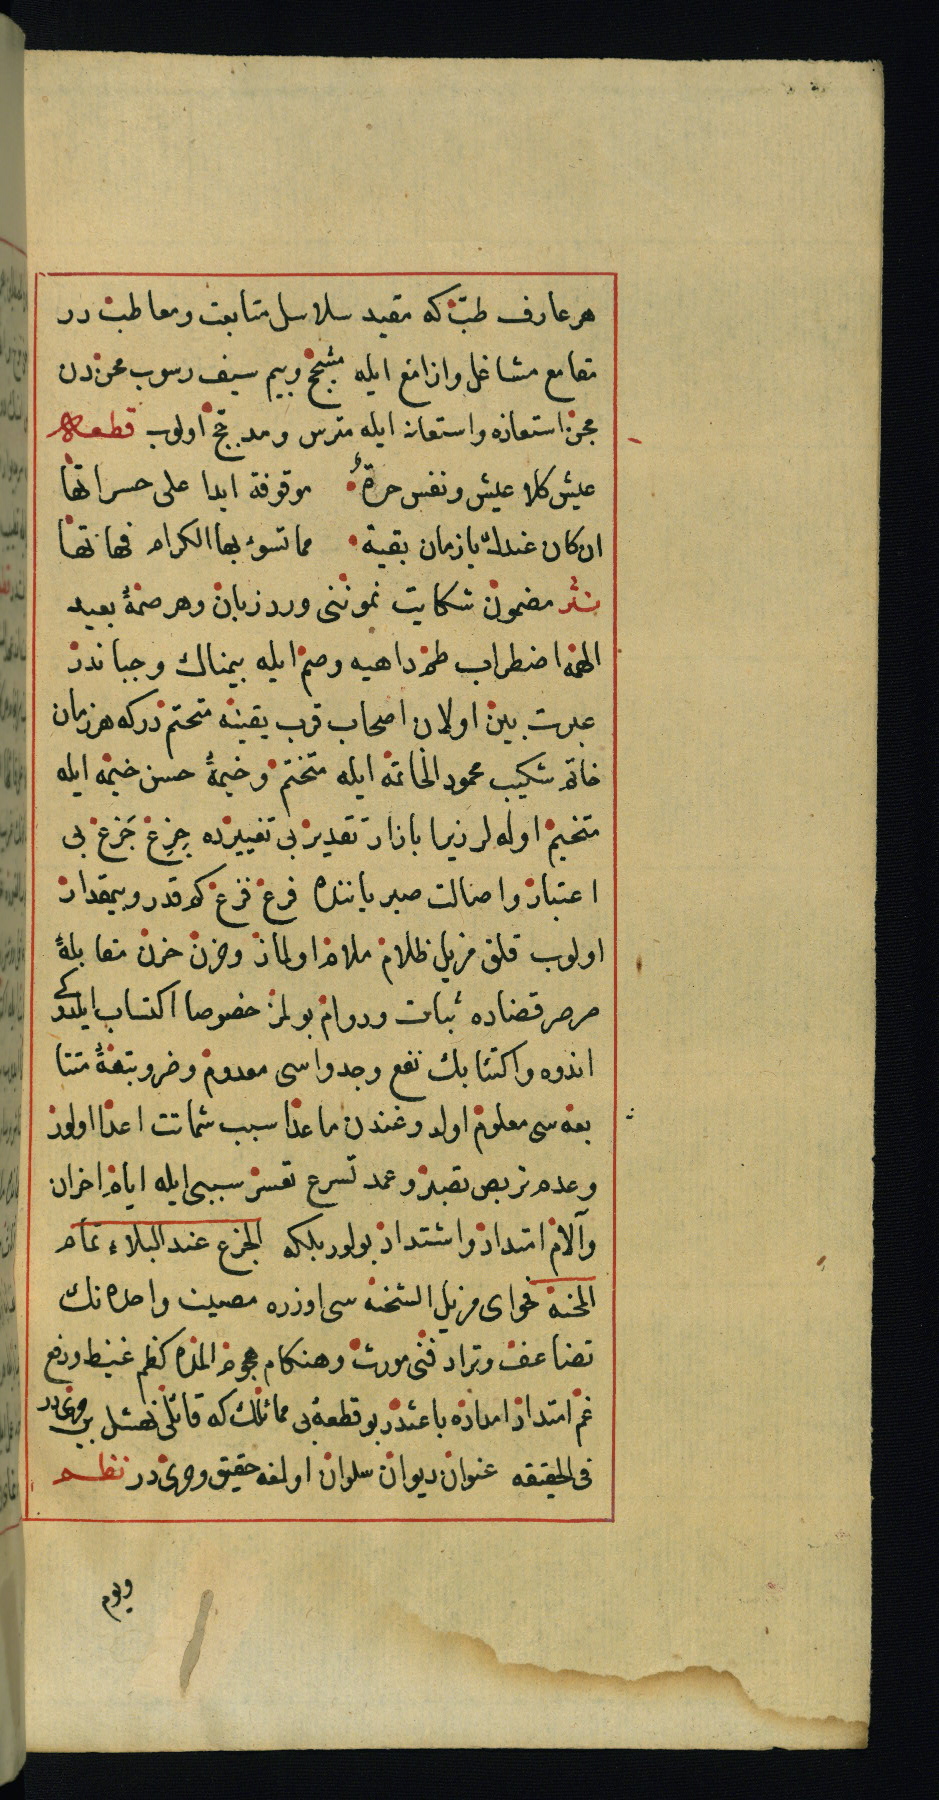 هر عارف طبّ كه مقيد سلاسل متابعت ومعاطب در
مقامع مشاغل وازامع ايله مشجج وبيم سيف رسوب محن دن
مجن استعاذه واستعانه ايله مترس ومدجج اولوب قطعه
عيش كلا عيش ونفس حرة موقوفة ابدا على حسراتها
ان كان عندك يا زمان بقية مما تسوء بها الكرام فهاتها
نثر مضمون شكايت نموننى ورد زبان وهر صمهٔ بعيد
الهمه اضطراب طمه داهيه وصم ايله بيمناك وجباندر
عبرت بين اولان اصحاب قرب يقينه متحتم دركه هر زمان
خاتم شكيب محمود الخاتمه ايله متختم وخيمهٔ حسن خيمه ايله
متخيم اوله لر زيرا بازار تقدير بى تغييرده جزع جزع بى
اعتبار واصالت صبر ياننده فرع فزع كم قدر وبيمقدار
اولوب قلق مزيل ظلام ملام اولماز وحزن خزن مقابلهٔ
صرصر قضاده ثبات ودوام بولمز خصوصا اكتساب ايلدوكى
اندوه واكتئابك نفع وجدواسى معدوم وضر وبتعهٔ متتا
بعه سى معلوم اولدوغندن ماعدا سبب شماتت اعدا اولور
وعدم تربص تصبر وعمد تسرع تعسر سببى ايله ايام احزان
وآلام امتداد واشتداد بولور بلكه الجزع عند البلاء تمام
المحنة فحواى مزيل الشخنه سى اوزره مصيبت واحده نك
تضاعف وتزاد فنى مورث وهنكام هجوم المده كظم غيظ ودفع
غم امتداد امداده باعثدر بو قطعهٔ بى مماثلك كه قائلى نهشل بن حرى در
فى الحقيقه عنوان ديوان سلوان اولمغه حقيق وحرى در نظم
ويوم